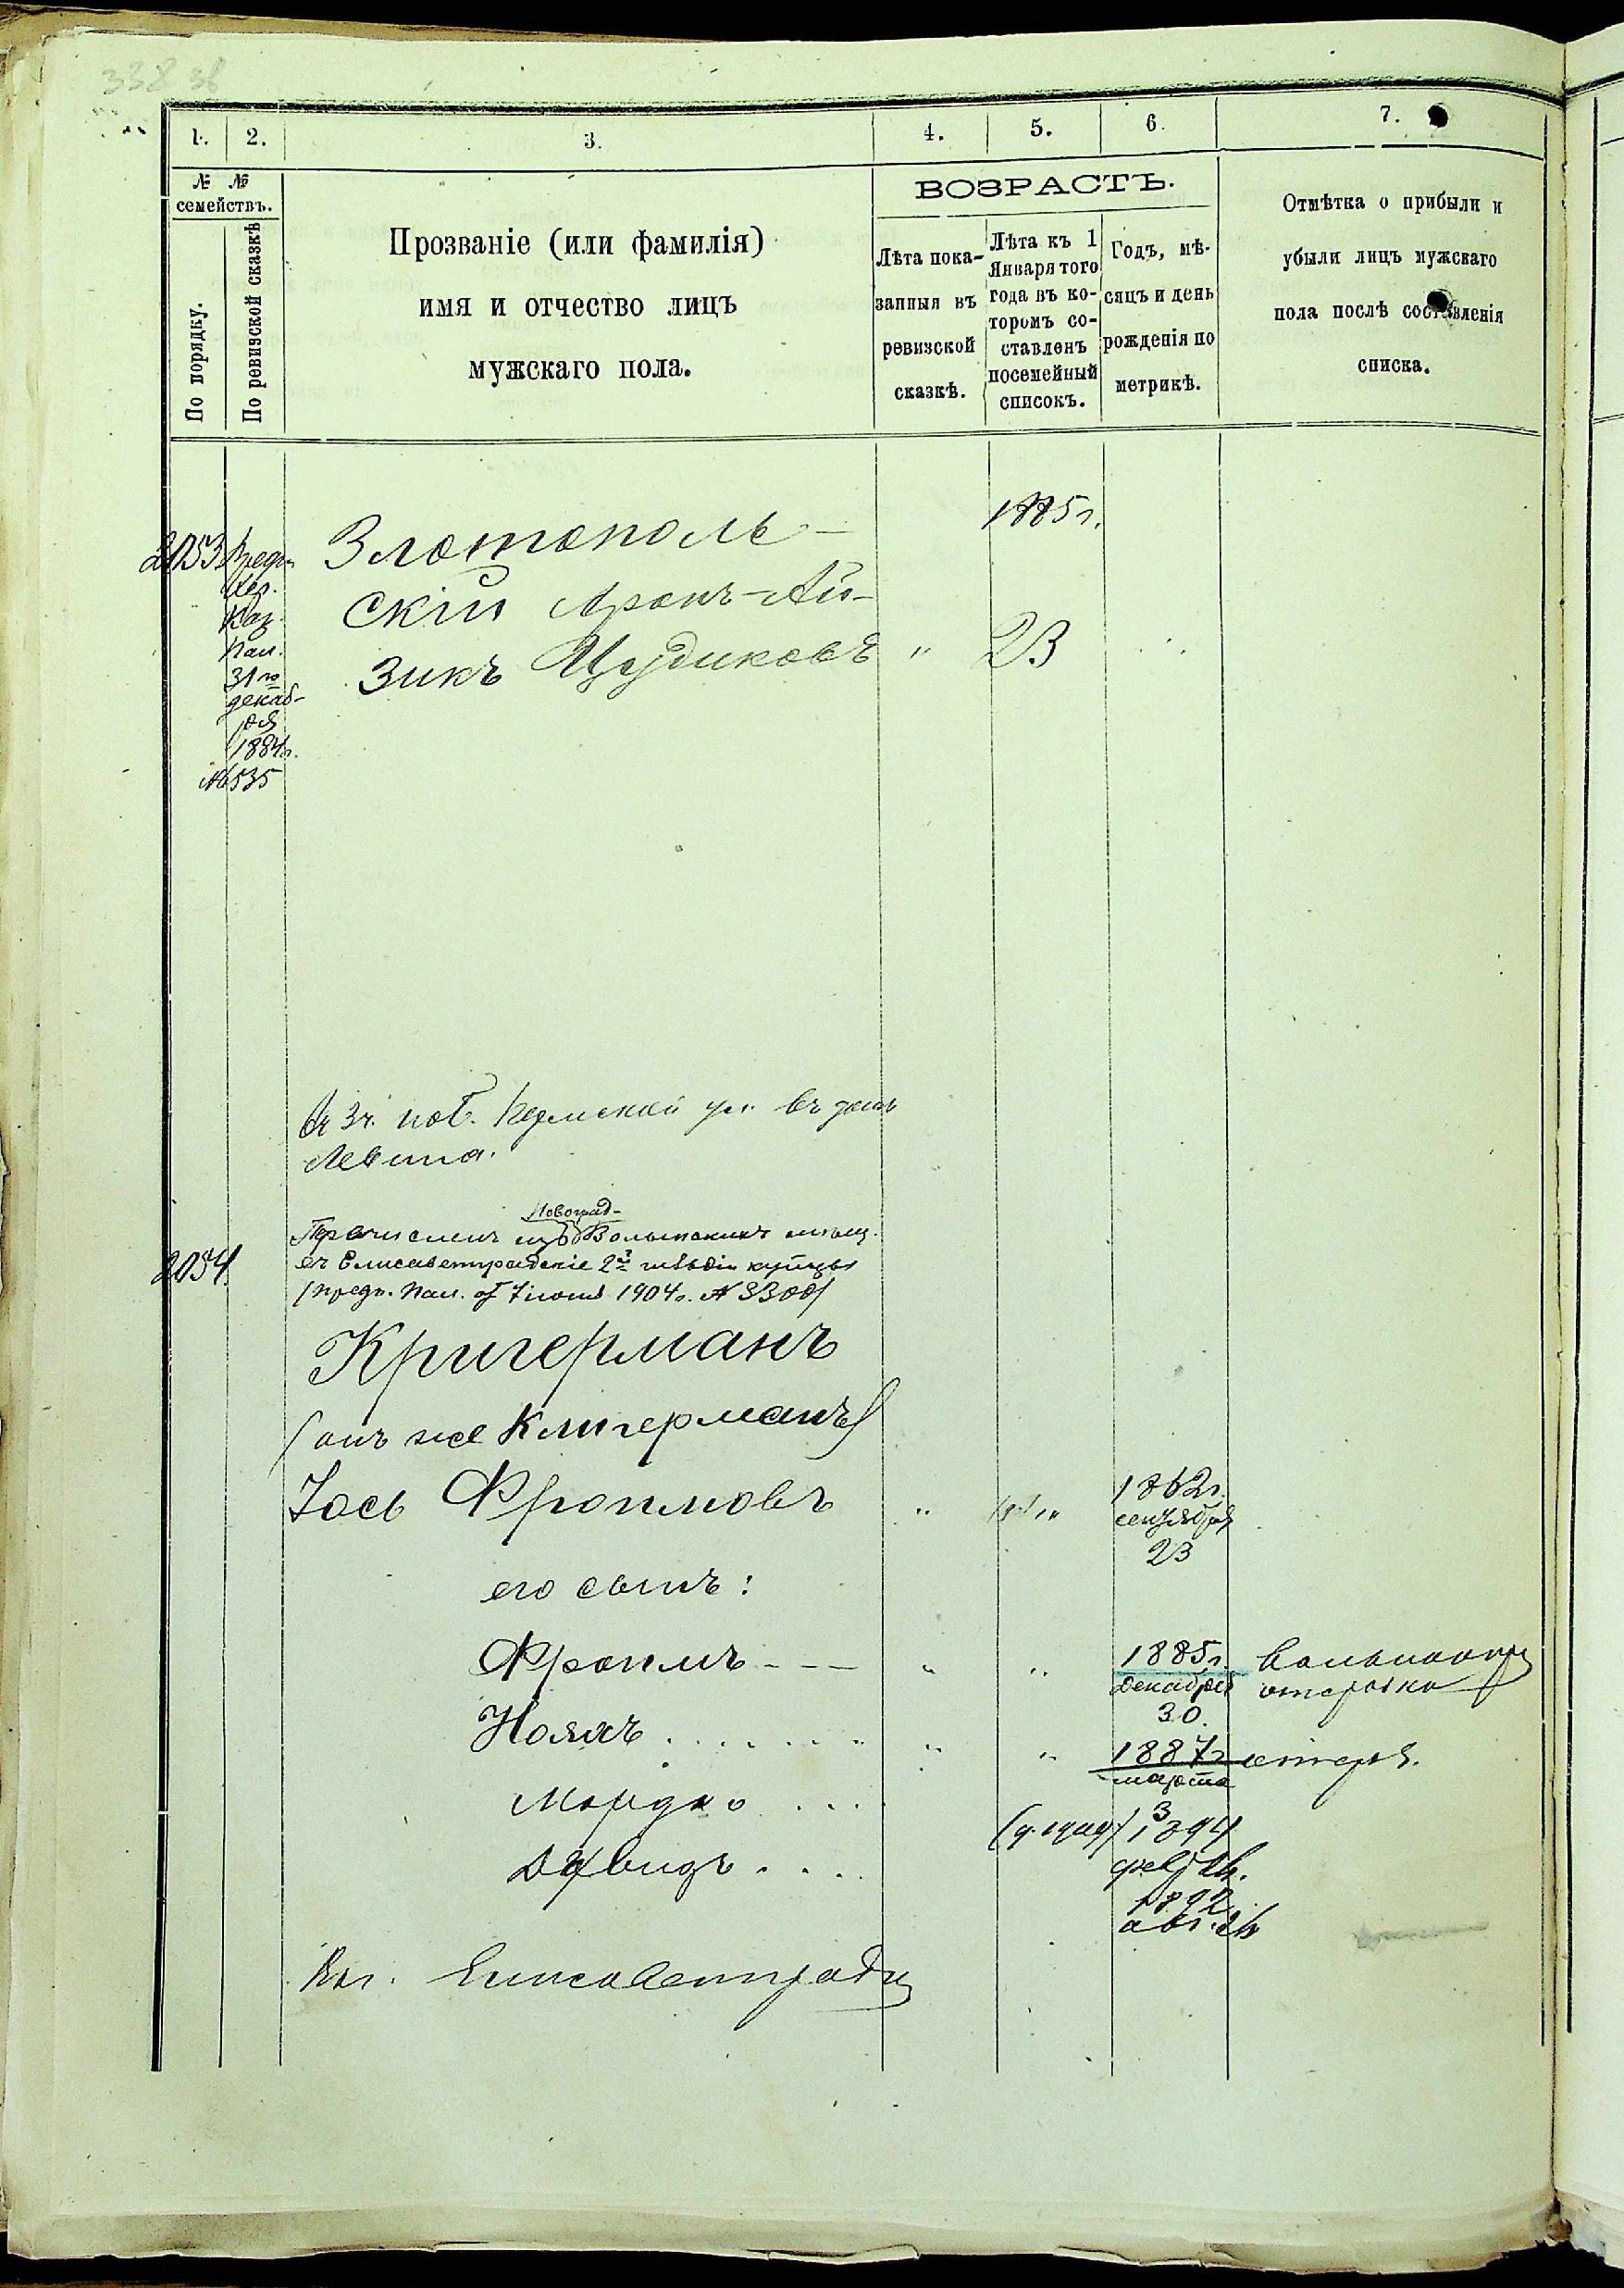 338 зв
1. 2. 3. 4. 5. 6. 7.
№ №
семействъ.
По порядку.
По ревизской сказкѣ
Прозваніе (или фамилія)
имя и отчество лицъ
мужскаго пола.
ВОЗРАСТЪ.
Лѣта пока-
занныя въ
ревизской
сказкѣ.
Лѣта къ 1
Января того
года въ ко-
торомъ со-
ставленъ
посемейный
списокъ.
Годъ, мѣ-
сяцъ и день
рожденія по
метрикѣ.
Отмѣтка о прибыли и
убыли лицъ мужскаго
пола послѣ составленія
списка.
1885г.
2053
Предп.
Хер.
Каз.
Пал.
31го
декаб-
ря
1884г.
№535
Злотополь-
скій Аронъ-Ай-
зикъ Цудиковъ " 23
3ч. Пермской ул. въ домѣ
Левина.
2054
Новоград-
Перечисленъ изъ Волынскихъ мѣщ.
въ Елисаветградскіе 2й гильдіи купцы
(предп. Пал. от 7 іюня 1904г. №
Кригерманъ
(онъ же Клигерманъ)
Іось Фроимовъ " " 1862г.
сентября
23
его сынъ:
Фроимъ - - - " " 1885г.
декабря
30.
отсрочка
Нояхъ . . . . . . " " 1887г
марта
3
отсроч.
Мордко . . . 1894
фев
Давидъ . . . . 1892
авг.
Елисаветград